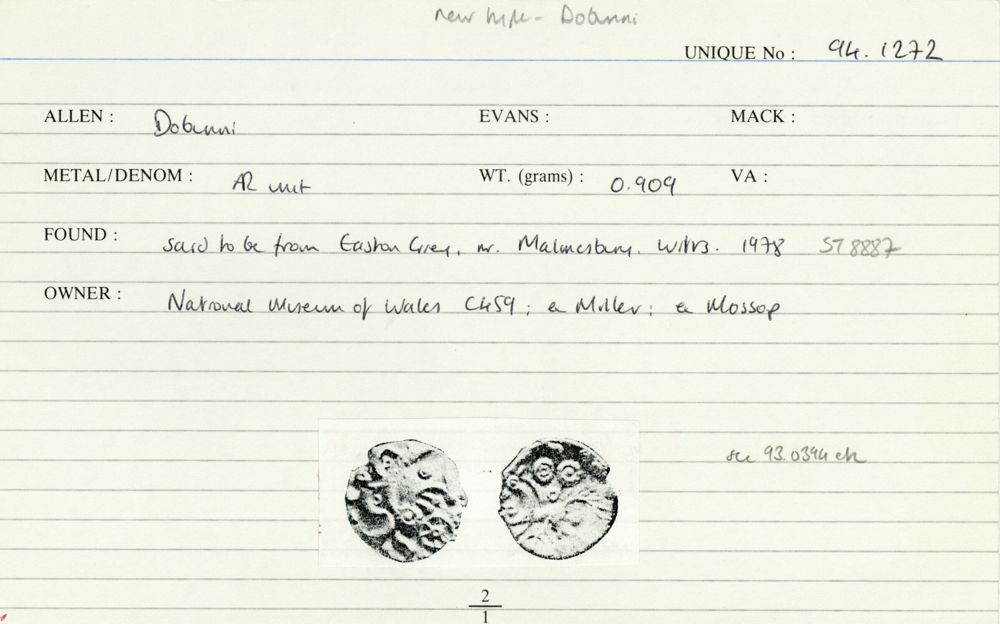 new type - Dobunni
UNIQUE No : 94.1272
ALLEN : Dobunni EVANS : MACK :
METAL/DENOM : AR unit WT. (grams) : 0.909 VA :
FOUND : said to be from Easton Grey, nr. Malmesbury, Wilts. 1978 ST 8887
OWNER : National Museum of Wales C459; ex Miller; ex Mossop
see 93.0394 etc
2
1